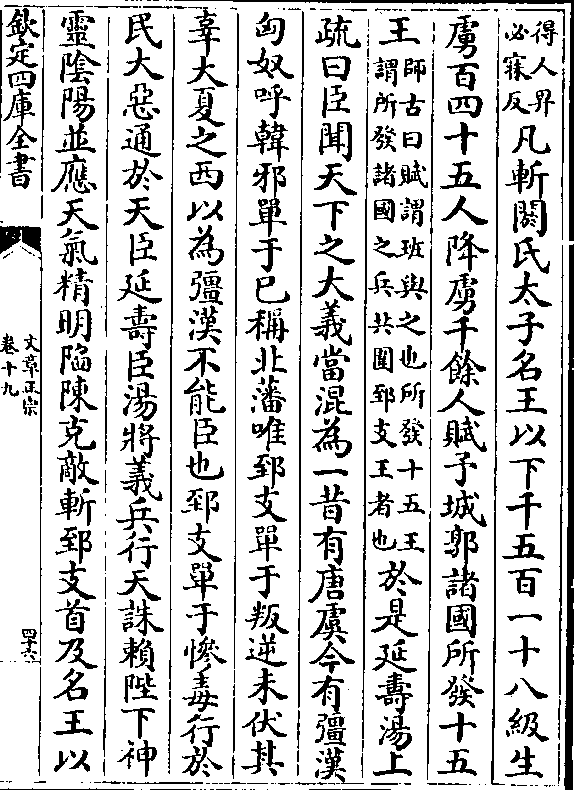 得人畀
必寐反凡斬閼氏太子名王以下千五百一十八級生
虜百四十五人降虜千餘人賦予城郭諸國所發十五
王師古曰賦謂班與之也所發十五王
謂所發諸國之兵共圍郅支王者也於是延壽湯上
疏曰臣聞天下之大義當混為一昔有唐虞今有彊漢
匈奴呼韓邪單于已稱北藩唯郅支單于叛逆未伏其
辜大夏之西以為彊漢不能臣也郅支單于慘毒行於
民大惡通於天臣延壽臣湯將義兵行天誅賴陛下神
靈陰陽並應天氣精明陷陳克敵斬郅支首及名王以
欽定四庫全書
文章正宗
卷十九
四十六